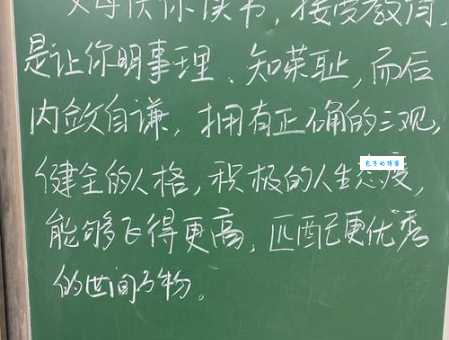 父母供你读书，接受教育，
是让你明事理、知荣耻，而后
内敛自谦，拥有正确的三观，
健全的人格，积极的人生态度，
能够飞得更高，匹配更优秀
的世间万物。